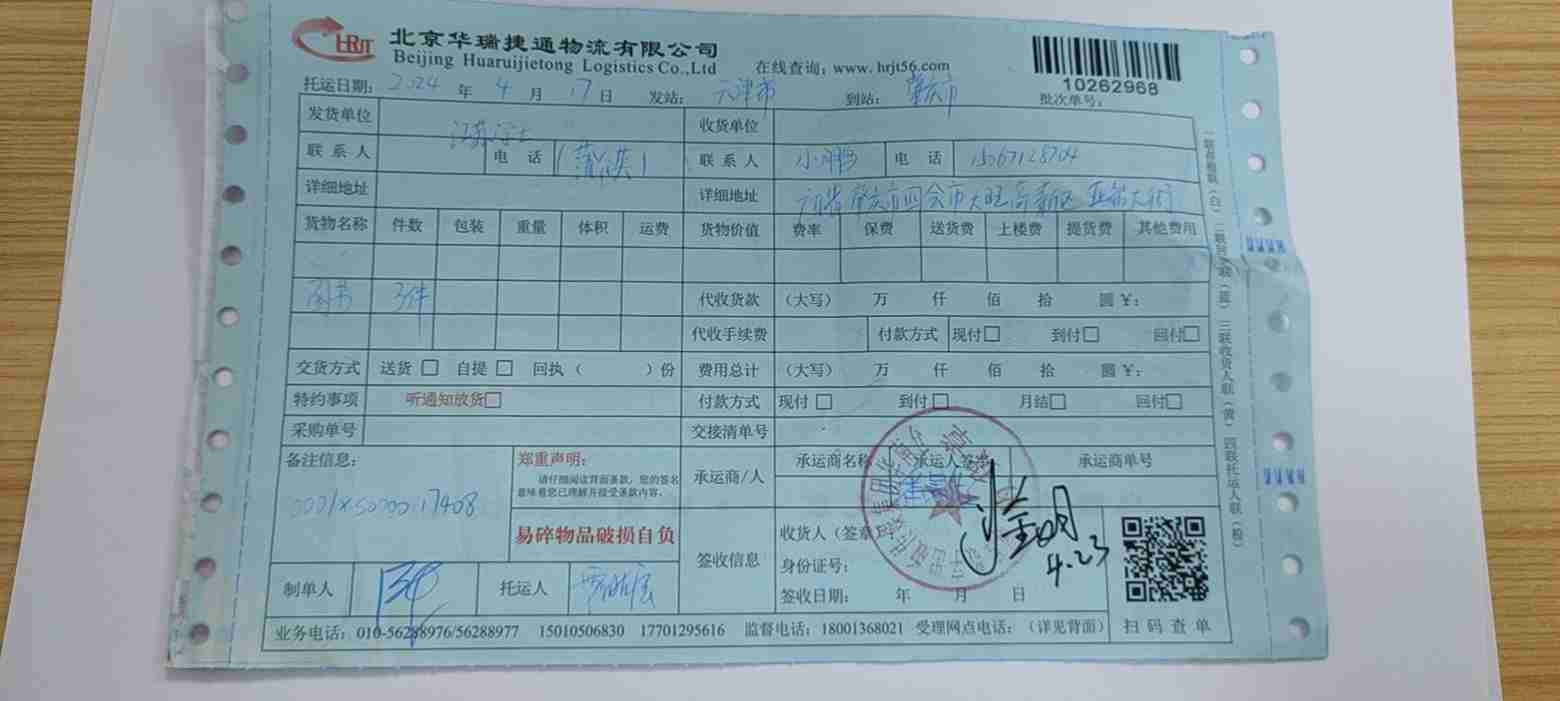 HRJT 北京华瑞捷通物流有限公司
Beijing Huaruijietong Logistics Co.,Ltd 在线查询：www.hrjt56.com
10262968
托运日期：2024 年 4 月 17 日 发站：天津市 到站：肇庆市 批次单号：
发货单位 收货单位
联系人 电话 联系人 小鹏 电话
详细地址 详细地址 肇庆市四会市大旺高新区
货物名称 件数 包装 重量 体积 运费 货物价值 费率 保费 送货费 上楼费 提货费 其他费用
图书 3件 代收货款 （大写） 万 仟 佰 拾 圆￥：
代收手续费 付款方式 现付□ 到付□ 回付□
交货方式 送货□ 自提□ 回执（ ）份 费用总计 （大写） 万 仟 佰 拾 圆￥：
特约事项 听通知放货□ 付款方式 现付□ 到付□ 月结□ 回付□
采购单号 交接清单号
备注信息： 郑重声明： 承运商/人 承运商名称 承运人签章 承运商单号
请仔细阅读背面条款，您的签名
意味着您已理解并接受条款内容。
易碎物品破损自负
签收信息 收货人（签章）
身份证号：
4.23
签收日期： 年 月 日
制单人 托运人
业务电话：010-56288976/56288977 15010506830 17701295616 监督电话：18001368021 受理网点电话：（详见背面） 扫码查单